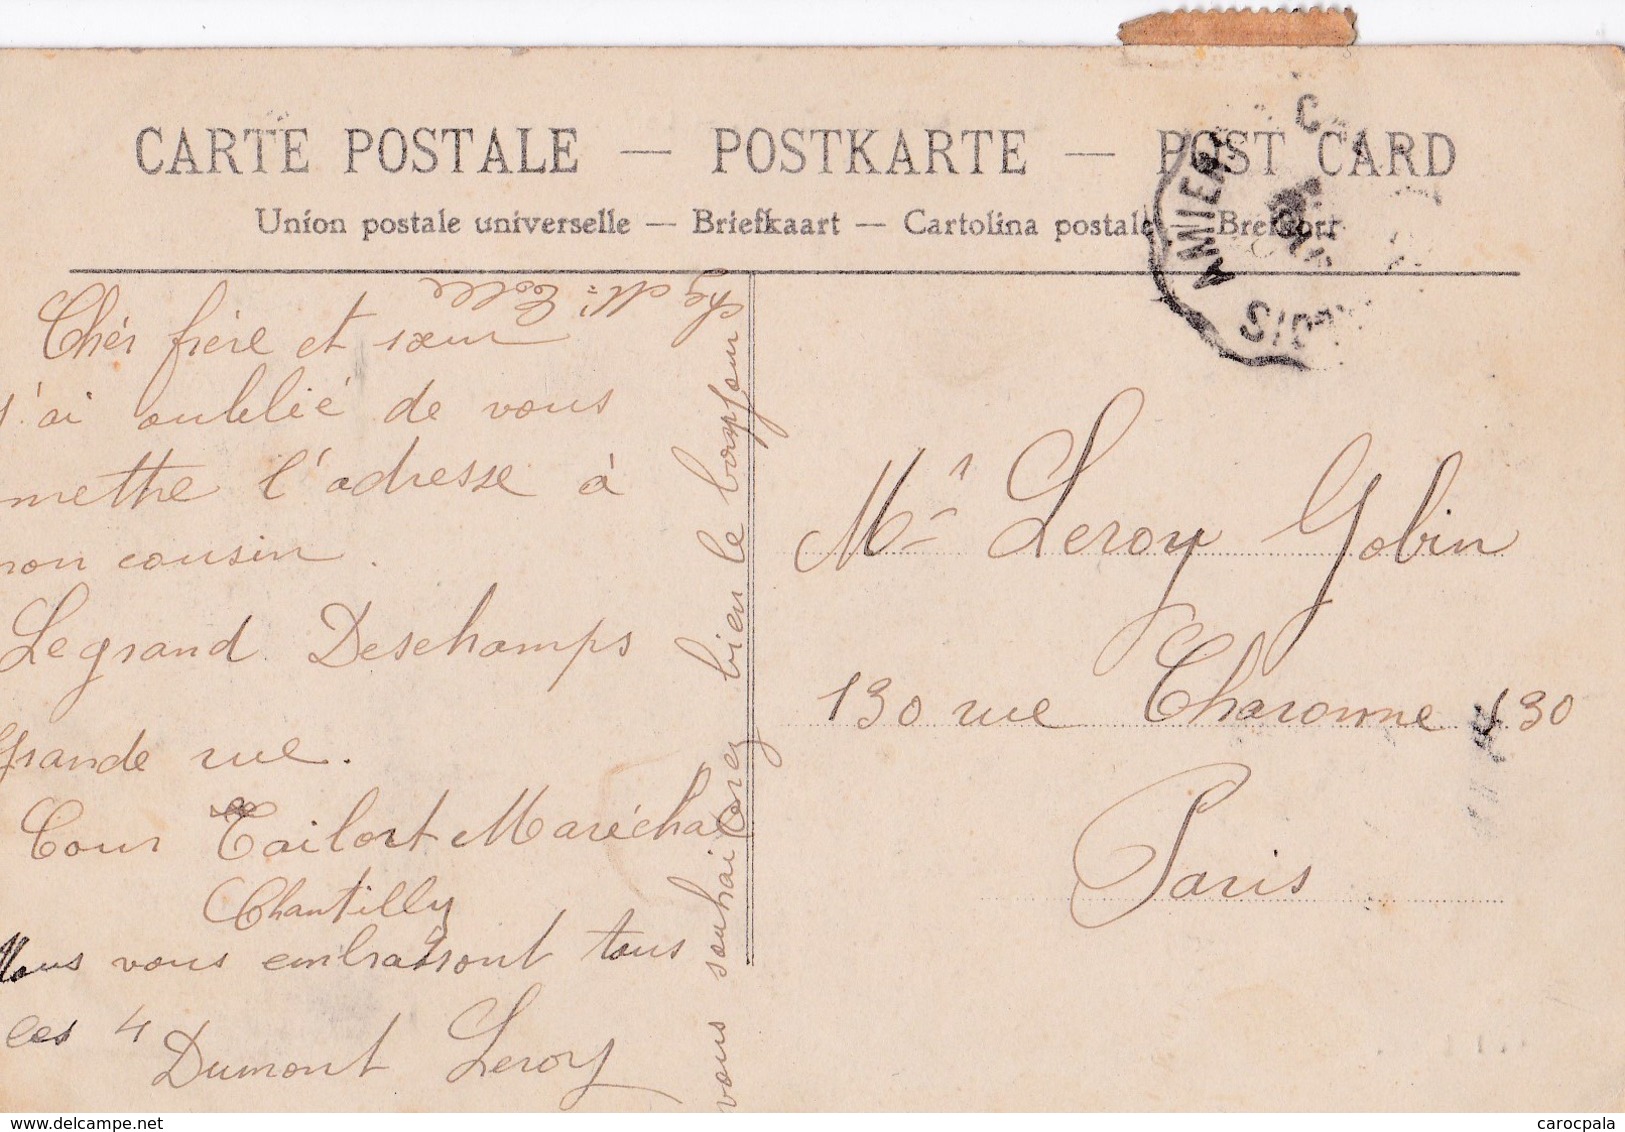 CARTE POSTALE — POSTKARTE — POST CARD
Union postale universelle — Briefkaart — Cartolina postale — Brefkort
AMIENS
Chér frère et sœur
j'ai oublié de vous
mettre l'adresse à
mon cousin.
Legrand Deschamps
grande rue.
Cour Tailort Maréchal
Chantilly
Nous vous embrassont tous
les 4
Dumont Leroy
vous souhaiterez bien le bonjour
chez Mr
Mr Leroy Gobin
130 rue Charonne 130
Paris
www.delcampe.net
carocpala